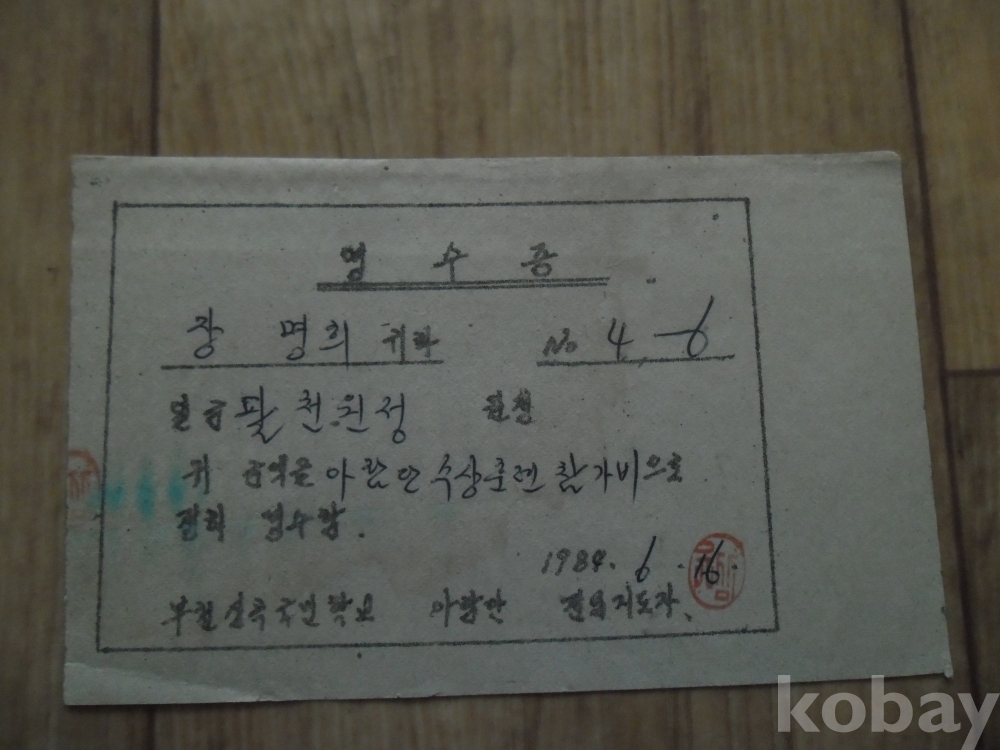 영 수 증
장 명희 귀하 No 4-6
일금 팔천원정 원정
위 금액을 아람단 수상훈련 참가비으로
정히 영수함.
1984. 6. 16.
부천신곡국민학교 아람단 전임지도자.
kobay